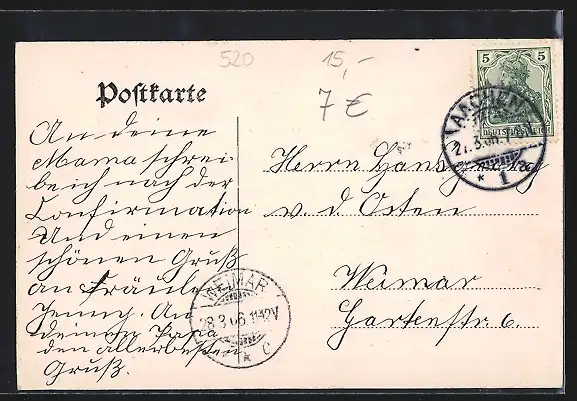 520
15,-
7 €
Postkarte
5 5
DEUTSCHES REICH
AACHEN
27.3.06.
* 1
An deine
Mama schrei-
be ich nach der
Confirmation
Und einen
schönen Gruß
an Fräulein
Jenny. An
deinen Papa
den allerbesten
Gruß.
Herrn Hans
v. d. Osten
Weimar
Gartenstr. 6.
WEIMAR
28.3.06.11-12V
* C